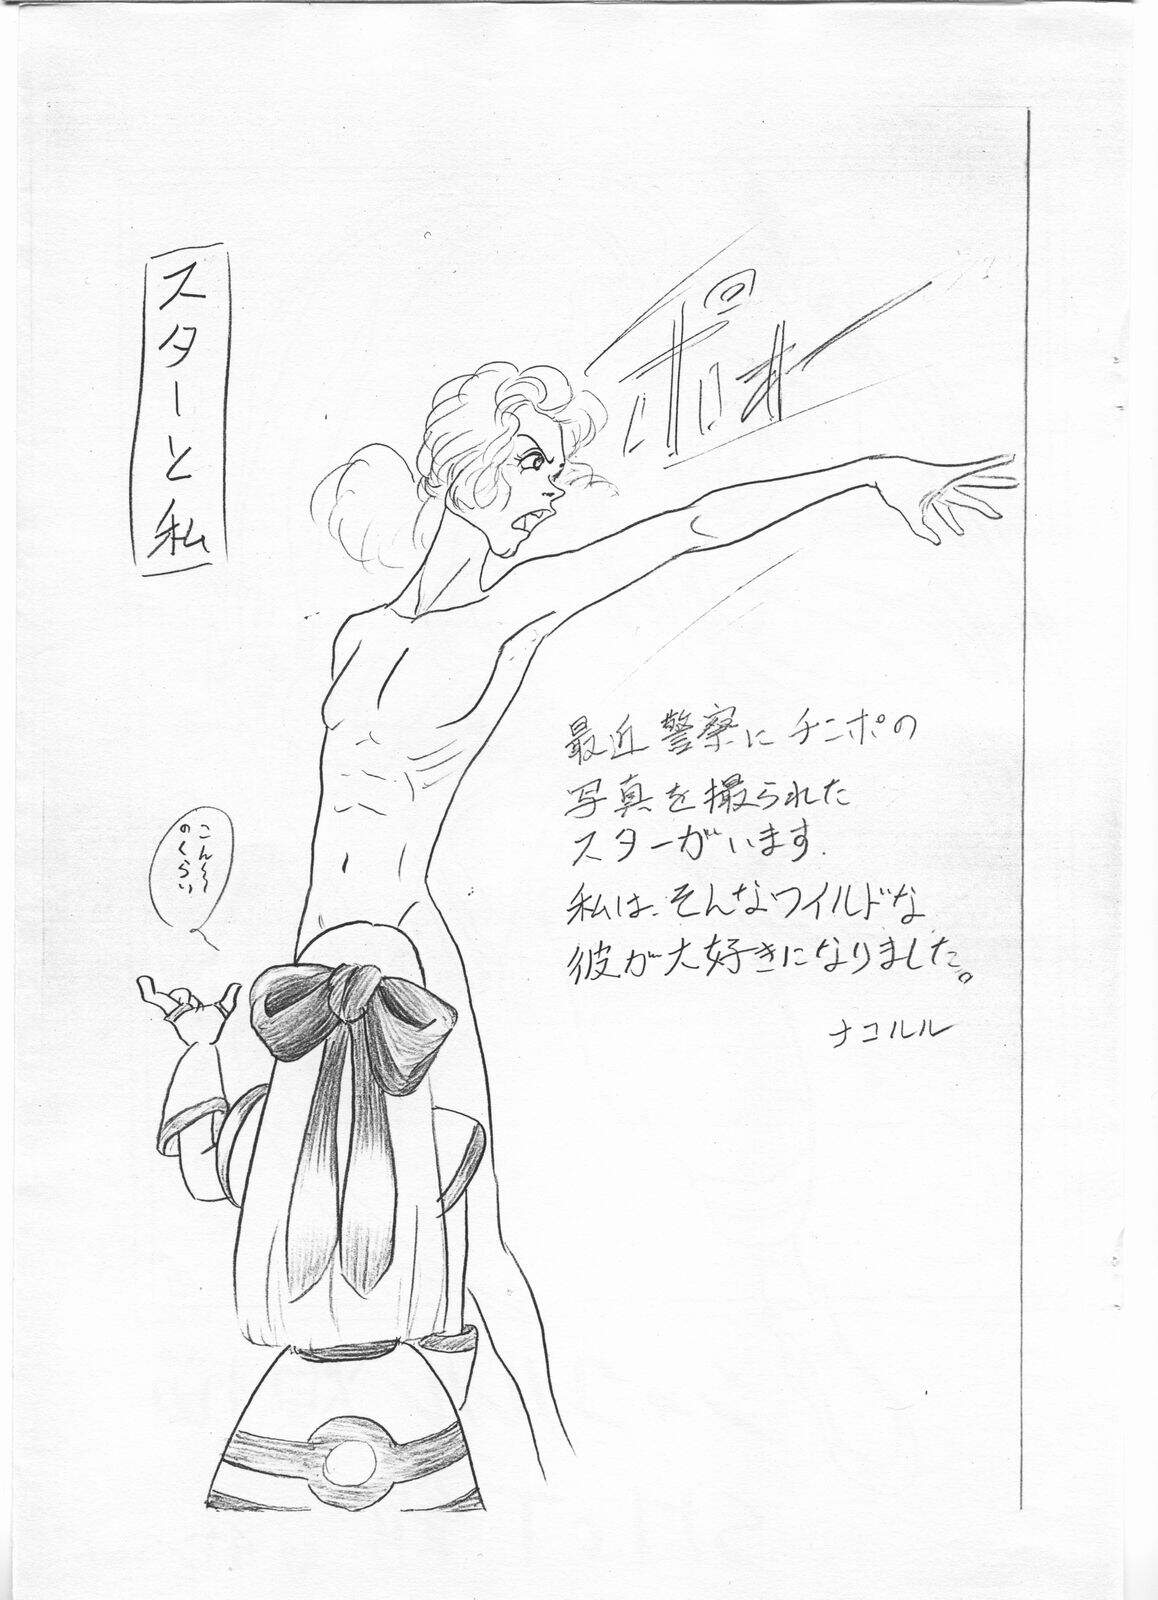 スターと私
ポオー
最近警察にチンポの
写真を撮られた
スターがいます.
私は、そんなワイルドな
彼が大好きになりました。
ナコルル
こん〜
のくらい